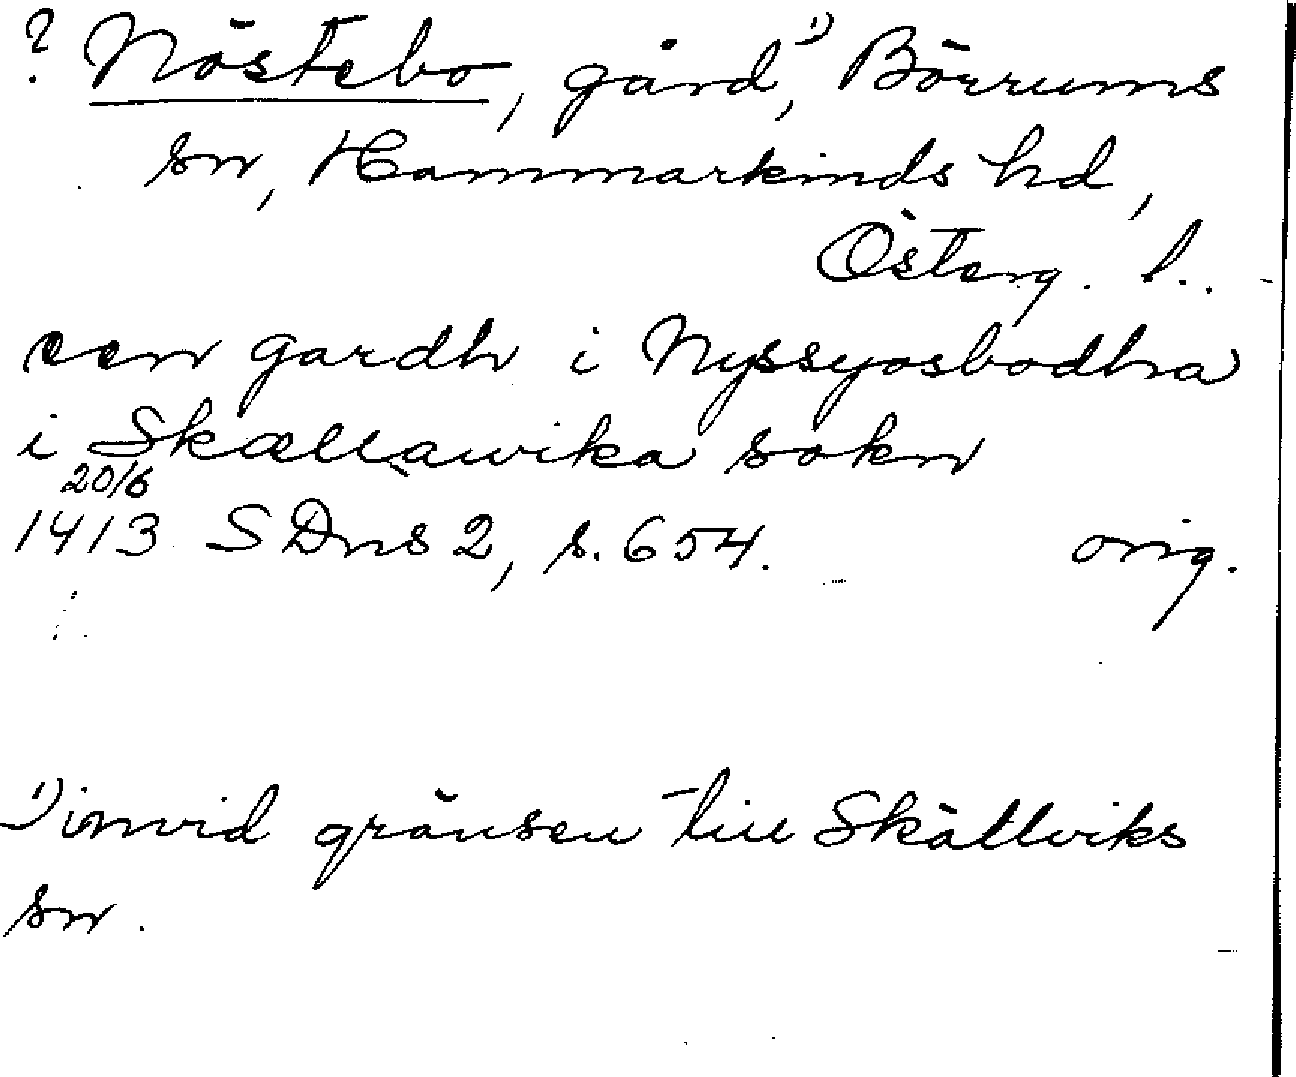 ? Nöstebo, gård,¹⁾ Börrums
sn, Hammarkinds hd,
Österg. l.
een gardh i Nyssyosbodha
i Skællawika sokn
20/6
1413 SDns 2, s. 654. orig.
¹⁾ invid gränsen till Skällviks
sn.